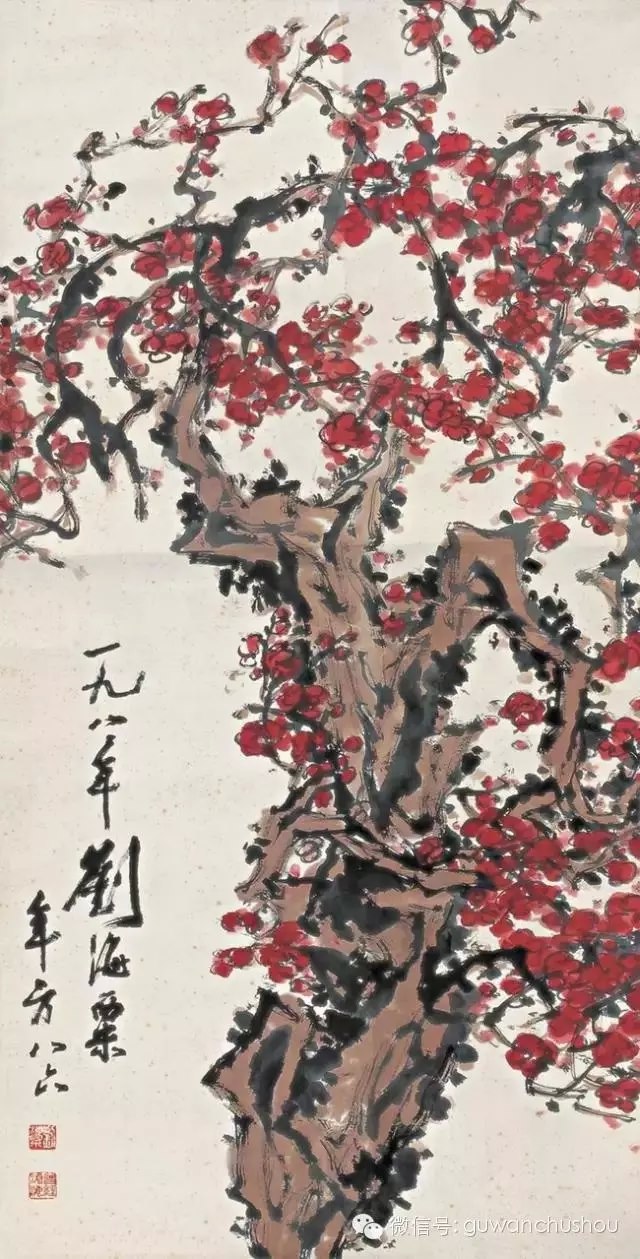 一九八一年
劉海粟
年方八六
微信号: guwanchushou